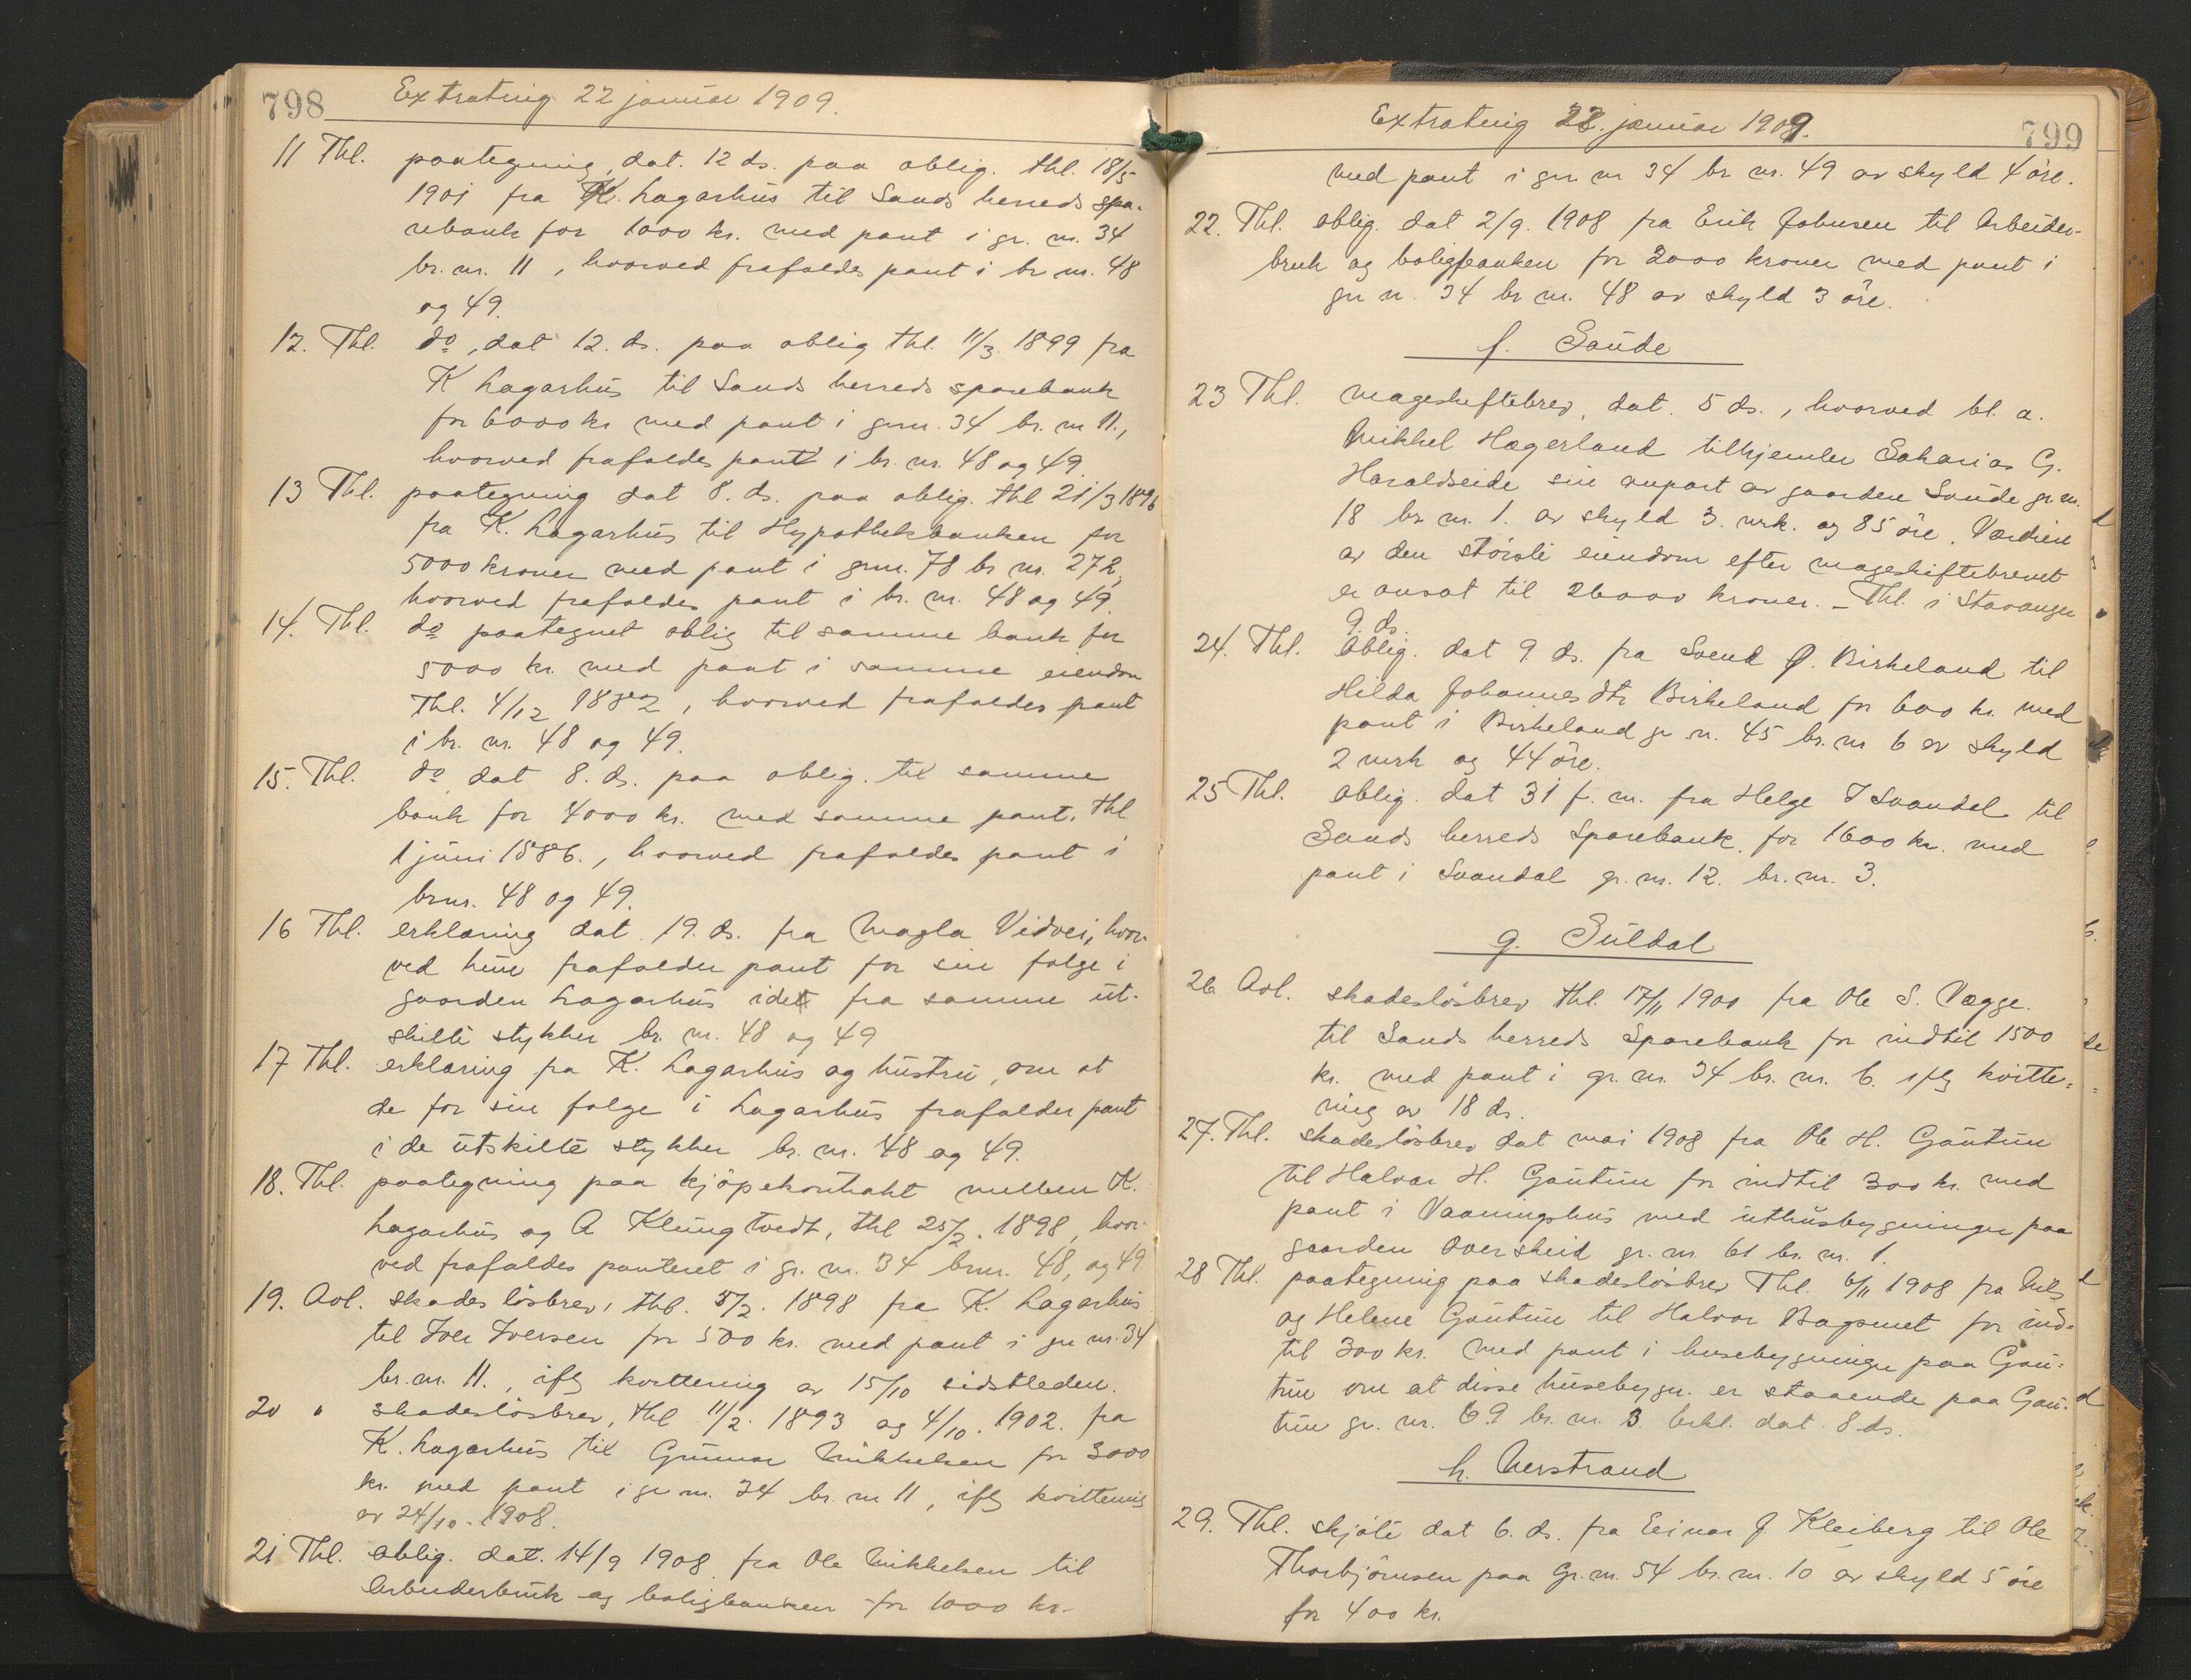 798 Extrating 22 januar 1909.
11 Thl. paategning, dat. 12 ds. paa oblig. thl. 18/5
1901 fra K. Lagarhus til Sands herreds spa-
rebank for 1000 kr. med pant i gr. nr. 34
br. nr. 11, hvorved frafaldes pant i br nr. 48
og 49.
12. Thl. do, dat 12. ds. paa oblig thl. 11/3 1899 fra
K Lagarhus til Sands herreds sparebank
for 6000 kr med pant i grnr. 34 br. nr 11.,
hvorved frafaldes pant i br. nr. 48 og 49.
13 Thl. paategning dat 8. ds. paa oblig. thl 21/3 1896
fra K. Lagarhus til Hypothekbanken for
5000 kroner med pant i grnr. 78 br nr. 272,
hvorved frafaldes pant i br. nr. 48 og 49.
14. Thl. do paategnet oblig til samme bank for
5000 kr. med pant i samme eiendom
Thl. 4/12 1882, hvorved frafaldes pant
i br. nr. 48 og 49.
15. Thl. do, dat 8. ds. paa oblig. til samme
bank for 4000 kr. med samme pant. thl
1 juni 1886., hvorved frafaldes pant i
brnr. 48 og 49.
16 Thl. erklæring dat. 19. ds. fra Magla Vidvei, hvor-
ved hun frafalder pant for sin følge i
gaarden Lagarhus i det fra samme ut-
skilte stykker br. nr. 48 og 49
17 Thl. erklæring fra K. Lagarhus og hustru, om at
de for sin følge i Lagarhus frafalder pant
i de utskilte stykker br. nr. 48 og 49.
18. Thl. paategning paa kjøpekontrakt mellem K.
Lagarhus og A Klungtvedt, thl 25/2. 1898, hvor-
ved frafaldes panteret i gr. nr. 34 brnr. 48, og 49.
19. Avl. skadesløsbrev, thl. 5/2. 1898 fra K. Lagarhus
til Iver Iversen for 500 kr. med pant i gr nr. 34
br. nr. 11., iflg kvittering av 15/10 sidstleden.
20 " skadesløsbrev, thl 11/2. 1893 og 4/10. 1902. fra
K. Lagarhus til Gunnar Mikkelsen for 3000
kr. med pant i gr nr. 34 br. nr 11, iflg kvittering
av 24/10. 1908.
21 Thl. oblig. dat. 14/9 1908 fra Ole Mikkelsen til
Arbeiderbruk og boligbanken for 1000 kr.
Extrating 22. januar 1909. 799
med pant i gnr nr 34 br nr. 49 av skyld 4 øre.
22. Thl. oblig. dat 2/9. 1908 fra Erik Johnsen til Arbeider-
bruk og boligbanken for 2000 kroner med pant i
gnr n. 34 br nr. 48 av skyld 3 øre.
f. Saude
23 Thl. mageskiftebrev, dat. 5 ds., hvorved bl. a.
Mikkel Hagerland tilhjemler Sakarias G.
Haraldseide sin anpart av gaarden Saude gr. nr.
18 br. nr. 1. av skyld 3. mrk. og 85 øre. Værdien
av den største eiendom efter mageskiftebrevet
er ansat til 26000 kroner. - Thl. i Stavanger
9. ds.
24. Thl. oblig. dat 9 ds. fra Svend Ø. Birkeland til
Hilda Johannesdtr Birkeland for 600 kr. med
pant i Birkeland gr n. 45 br. nr 6 av skyld
2 mrk og 44 øre.
25 Thl. oblig. dat 31 f. m. fra Helge I Svandal til
Sands herreds Sparebank. for 1600 kr. med
pant i Svandal gr. nr. 12. br. nr. 3.
g. Suldal
26 Avl. skadesløsbrev thl. 17/11 1900 fra Ole S. Vægge.
til Sands herreds Sparebank for indtil 1500
kr. med pant i gr. nr. 34 br. nr. 6. iflg kvitte-
ring av 18 ds.
27. Thl. skadesløsbrev dat mai 1908 fra Ole H. Gautun
til Halvar H. Gautun for indtil 300 kr. med
pant i Vaaningshus med uthusbygninger paa
gaarden Oversheid gr. nr. 61 br. nr. 1.
28 Thl. paategning paa skadesløsbrev Thl. 6/11 1908 fra Nils
og Helene Gautun til Halvor Bagsmet for ind-
til 300 kr. med pant i husebygninger paa Gau-
tun om at disse husebygn. er staaende paa Gau-
tun gr. nr. 69 br. nr. 3. Erkl. dat. 8 ds.
h. Nerstrand
29. Thl. skjøte dat 6. ds. fra Einar J. Kleiberg til Ole
Thorbjørnsen paa gr. nr. 54 br. nr. 10 av skyld 5 øre
for 400 kr.